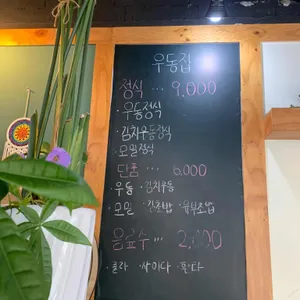 우동집
정식 ... 9,000
· 우동정식
· 김치우동정식
· 모밀정식
단품 ... 6,000
· 우동 · 김치우동
· 모밀 · 유부초밥
음료수 ... 2,000
· 콜라 · 사이다 · 환타